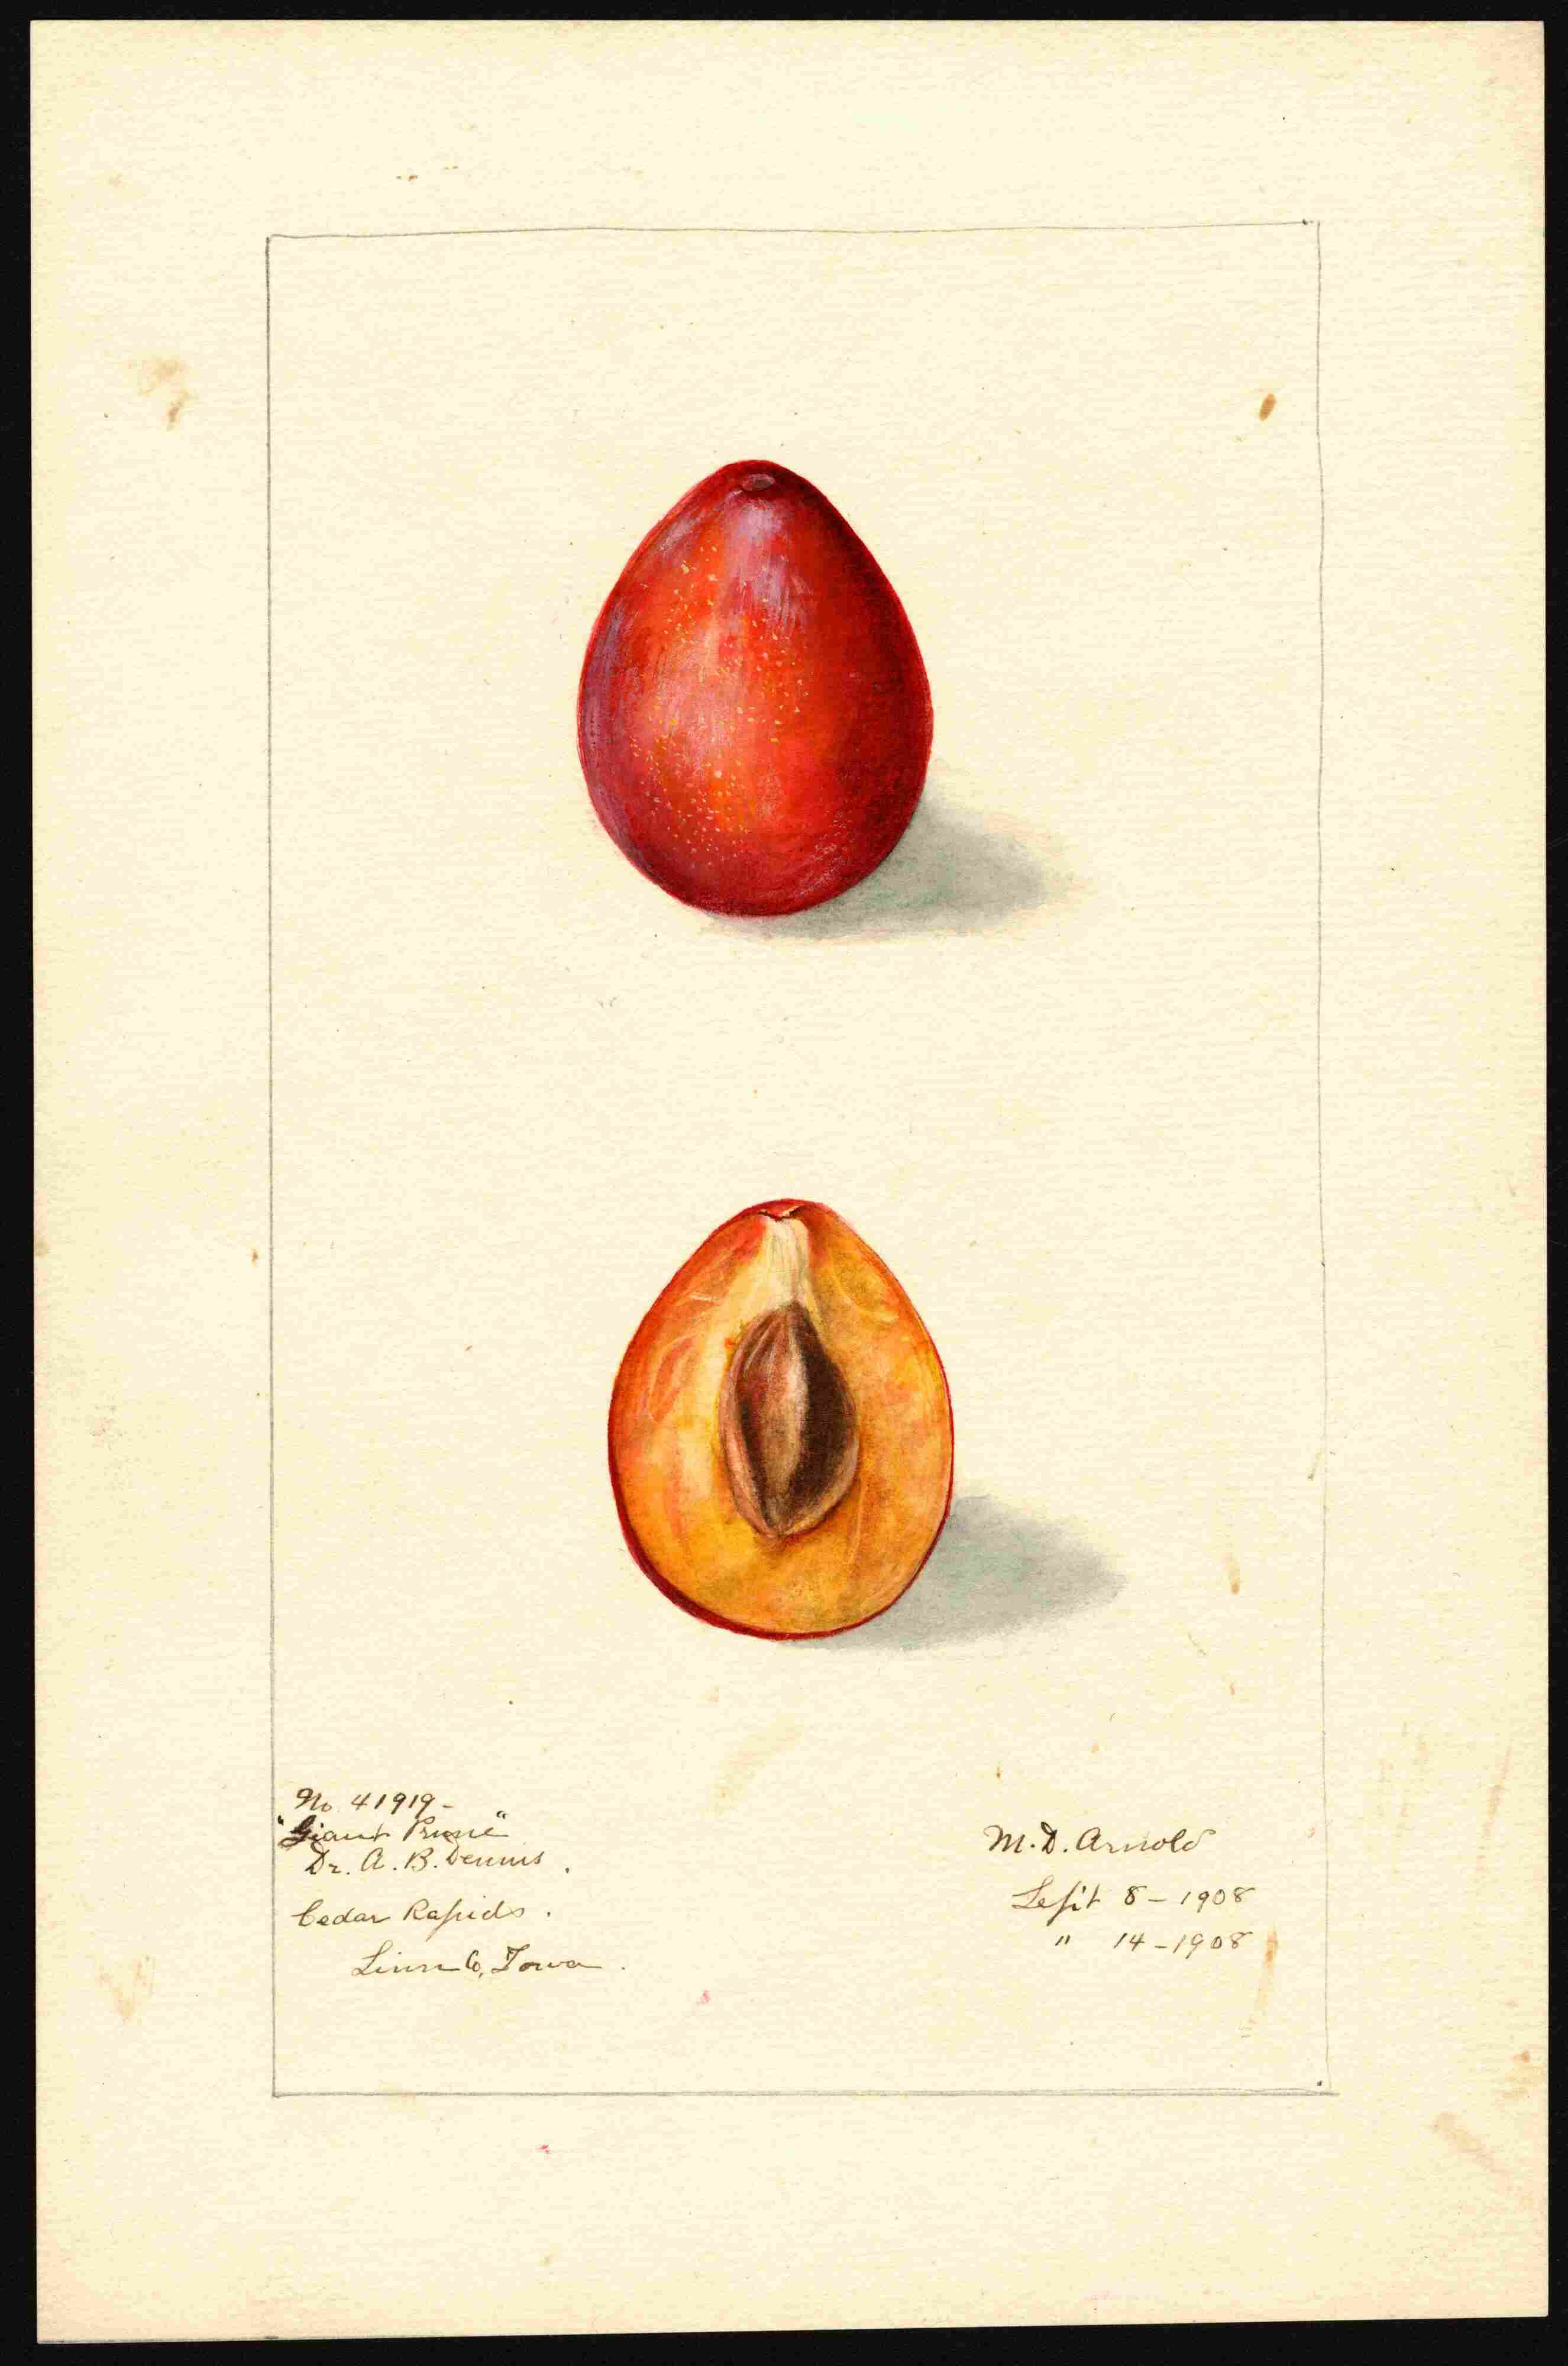 No. 41919-
"Giant Prune"
Dr. A. B. Dennis.
Cedar Rapids.
Linn Co, Iowa.
M. D. Arnold
Sept 8 - 1908
" 14 - 1908